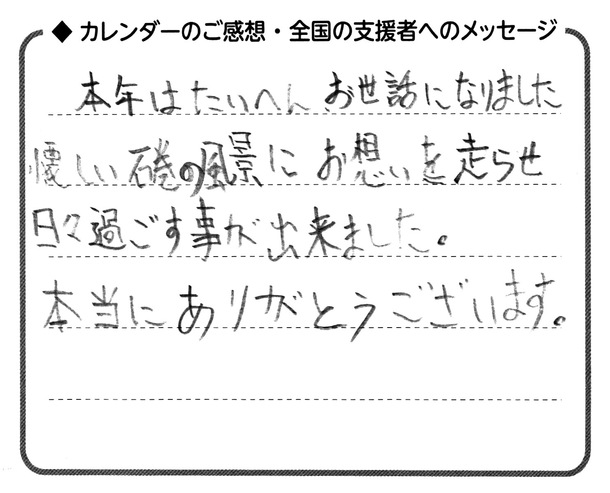 ◆ カレンダーのご感想・全国の支援者へのメッセージ
本年はたいへん お世話になりました
優しい磯の風景に お想いを走らせ
日々過ごす事が出来ました。
本当にありがとうございます。